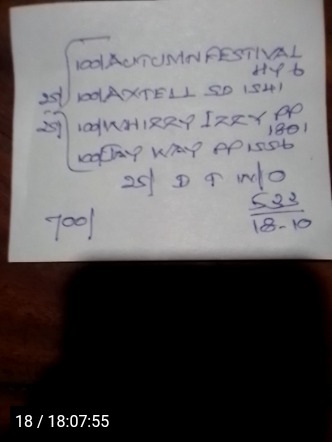 100/ AUTUMN FESTIVAL
HY 6
25/ 100/ AXTELL SD 1541
25/ 100/ WHIZZY IZZY PP
1801
100/ JAY WAY PP 1556
25/ D F W/O
533
700/ 18-10
18 / 18:07:55